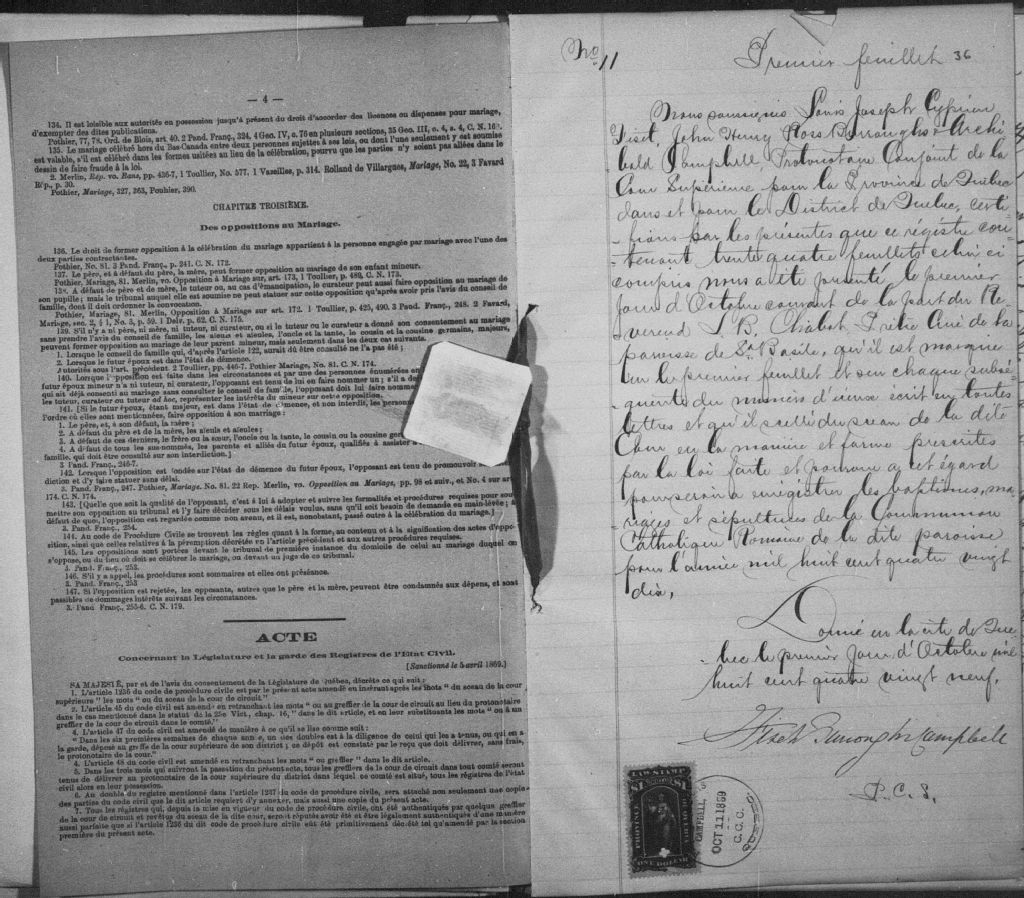 — 4 —
134. Il est loisible aux autorités en possession jusqu'à présent du droit d'accorder des licences ou dispenses pour mariage,
d'exempter des dites publications.
Pothier, 77, 78. Ord. de Blois, art. 40. 2 Pand. Franç., 324, 4 Geo. IV, c. 76 en plusieurs sections, 35 Geo. III, c. 4, s. 4, C. N. 16
135. Le mariage célébré hors du Bas-Canada entre deux personnes sujettes à ses lois, ou dont l'une seulement y est soumise
est valable, s'il est célébré dans les formes usitées au lieu de la célébration, pourvu que les parties n'y soient pas allées dans le
dessein de faire fraude à la loi.
2. Merlin, Rép. vo. Bans, pp. 436-7, 1 Toullier, No. 577, 1 Vazeilles, p. 314. Rolland de Villargues, Mariage, No. 22, 3 Favard
Rép., p. 30.
Pothier, Mariage, 327, 363, Pouhier, 390.
CHAPITRE TROISIÈME.
Des oppositions au Mariage.
136. Le droit de former opposition à la célébration du mariage appartient à la personne engagée par mariage avec l'une des
deux parties contractantes.
Pothier, No. 81. 3 Pand. Franç., p. 241. C. N. 172.
137. Le père, et à défaut du père, la mère, peut former opposition au mariage de son enfant mineur.
Pothier, Mariage, 81. Merlin, vo. Opposition à Mariage sur, art. 173, 1 Toullier, p. 489, C. N. 173.
138. A défaut de père et de mère, le tuteur ou, au cas d'émancipation, le curateur peut aussi faire opposition au mariage de
son pupille; mais le tribunal auquel elle est soumise ne peut statuer sur cette opposition qu'après avoir pris l'avis du conseil de
famille, dont il doit ordonner la convocation.
Pothier, Mariage, 81. Merlin, Opposition à Mariage sur art. 172. 1 Toullier, p. 425, 490. 3 Pand. Franç., 248. 2 Favard,
Mariage, sec. 2, § 1, No. 5, p. 59. 1 Delv. p. 62. C. N. 175.
139. S'il n'y a ni père, ni mère, ni tuteur, ni curateur, ou si le tuteur ou le curateur a donné son consentement au mariage
sans prendre l'avis du conseil de famille, les aïeuls et aïeules, l'oncle et la tante, le cousin et la cousine germains, majeurs,
peuvent former opposition au mariage de leur parent mineur, mais seulement dans les deux cas suivants.
1. Lorsque le conseil de famille qui, d'après l'article 122, aurait dû être consulté ne l'a pas été;
2. Lorsque le futur époux est dans l'état de démence.
Autorités sous l'art. précédent. 2 Toullier, pp. 446-7. Pothier Mariage, No. 81. C. N. 174.
140. Lorsque l'opposition est faite dans les circonstances et par une des personnes énumérées en
futur époux mineur n'a ni tuteur, ni curateur, l'opposant est tenu de lui en faire nommer un; s'il a
qui ait déjà consenti au mariage sans consulter le conseil de famille, l'opposant doit lui faire nommer
les tuteur, curateur ou tuteur ad hoc, représenter les intérêts du mineur sur cette opposition.
141. [Si le futur époux, étant majeur, est dans l'état de démence, et non interdit, les personnes
l'ordre où elles sont mentionnées, faire opposition à son mariage:
1. Le père, et, à son défaut, la mère;
2. A défaut du père et de la mère, les aïeuls et aïeules;
3. A défaut de ces derniers, le frère ou la sœur, l'oncle ou la tante, le cousin ou la cousine
4. A défaut de tous les sus-nommés, les parents et alliés du futur époux, qualifiés à assister à
famille, qui doit être consulté sur son interdiction.]
3 Pand. Franç., 246-7.
142. Lorsque l'opposition est fondée sur l'état de démence du futur époux, l'opposant est tenu de promouvoir
diction et d'y faire statuer sans délai.
3. Pand. Franç., 247. Pothier, Mariage. No. 81. 22 Rep. Merlin, vo. Opposition au Mariage, pp. 98 et suiv., et No. 4 sur art.
174. C. N. 174.
143. [Quelle que soit la qualité de l'opposant, c'est à lui à adopter et suivre les formalités et procédures requises pour sou-
mettre son opposition au tribunal et l'y faire décider sous les délais voulus, sans qu'il soit besoin de demande en main-levée; à
défaut de quoi, l'opposition est regardée comme non avenue, et il est, nonobstant, passé outre à la célébration du mariage.]
3. Pand. Franç., 254.
144. Au code de Procédure Civile se trouvent les règles quant à la forme, au contenu et à la signification des actes d'oppo-
sition, ainsi que celles relatives à la péremption décrétée en l'article précédent et aux autres procédures requises.
145. Les oppositions sont portées devant le tribunal de première instance du domicile de celui au mariage duquel on
s'oppose, ou du lieu où doit se célébrer le mariage, ou devant un juge de ce tribunal.
3. Pand. Franç., 253.
146. S'il y a appel, les procédures sont sommaires et elles ont préséance.
3. Pand. Franç., 253
147. Si l'opposition est rejetée, les opposants, autres que le père et la mère, peuvent être condamnés aux dépens, et sont
passibles de dommages intérêts suivant les circonstances.
3. Pand. Franç., 255-6. C. N. 179.
ACTE
Concernant la Législature et la garde des Registres de l'Etat Civil.
[Sanctionné le 5 avril 1869.]
SA MAJESTÉ, par et de l'avis du consentement de la Législature de Québec, décrète ce qui suit:
1. L'article 1236 du code de procédure civile est par le présent acte amendé en insérant après les mots "du sceau de la cour
supérieure" les mots "ou du sceau de la cour de circuit."
2. L'article 45 du code civil est amendé en retranchant les mots "ou au greffier de la cour de circuit au lieu du protonotaire
dans le cas mentionné dans le statut de la 25e Vict., chap. 16," dans le dit article, et en leur substituant les mots "ou à un
greffier de la cour de circuit dans le comté."
4. L'article 47 du code civil est amendé de manière à ce qu'il se lise comme suit:
"Dans les six premières semaines de chaque année, un des doubles est à la diligence de celui qui les a tenus, ou qui en a
la garde, déposé au greffe de la cour supérieure de son district; ce dépôt est constaté par le reçu que doit délivrer, sans frais,
le protonotaire de la cour."
4. L'article 48 du code civil est amendé en retranchant les mots "ou greffier" dans le dit article.
5. Dans les trois mois qui suivront la passation du présent acte, tous les greffiers de la cour de circuit dans tout comté seront
tenus de délivrer au protonotaire de la cour supérieure du district dans lequel ce comté est situé, tous les régistres de l'état
civil alors en leur possession.
6. Au double du registre mentionné dans l'article 1237 du code de procédure civile, sera attaché non seulement une copie
des parties du code civil que le dit article requiert d'y annexer, mais aussi une copie du présent acte.
7. Tous les régistres qui, depuis la mise en vigueur du code de procédure civile, ont été authentiqués par quelque greffier
de la cour de circuit et revêtus du sceau de la dite cour, seront réputés avoir été et être légalement authentiqués d'une manière
aussi parfaite que si l'article 1236 du dit code de procédure civile eût été primitivement décrété tel qu'amendé par la section
première du présent acte.
No 11
Premier feuillet 36
Nous soussignés Louis Joseph Cyprien
Fiset, John Henry Ross Burroughs & Archi-
bald Campbell Protonotaire Conjoint de la
Cour Supérieure pour la Province de Québec
dans et pour le District de Québec, certi-
-fions par les présentes que ce régistre con-
-tenant trente quatre feuillets celui ci
compris nous a été présenté le premier
jour d'Octobre courant de la part du Ré-
verend J. B. Chabot Prêtre Curé de la
paroisse de St Basile, qu'il est marqué
sur le premier feuillet et sur chaque subsé-
quent du numéro d'icelui écrit en toutes
lettres et qu'il est scellé du sceau de la dite
Cour en la manière et forme prescrites
par la loi faite et pourvue à cet égard
pour servir à enrégistrer les baptêmes, ma-
riages et sépultures de la Communion
Catholique Romaine de la dite paroisse
pour l'année mil huit cent quatre vingt
dix,
Donné en la cité de Qué-
-bec le premier jour d'Octobre mil
huit cent quatre vingt neuf.
Fiset Burroughs Campbell
P. C. S.
LAW STAMP
$1 $1
PROVINCE
QUEBEC
ONE DOLLAR
CAMPBELL
OCT 11 1889
C.C.C.
QUEBEC